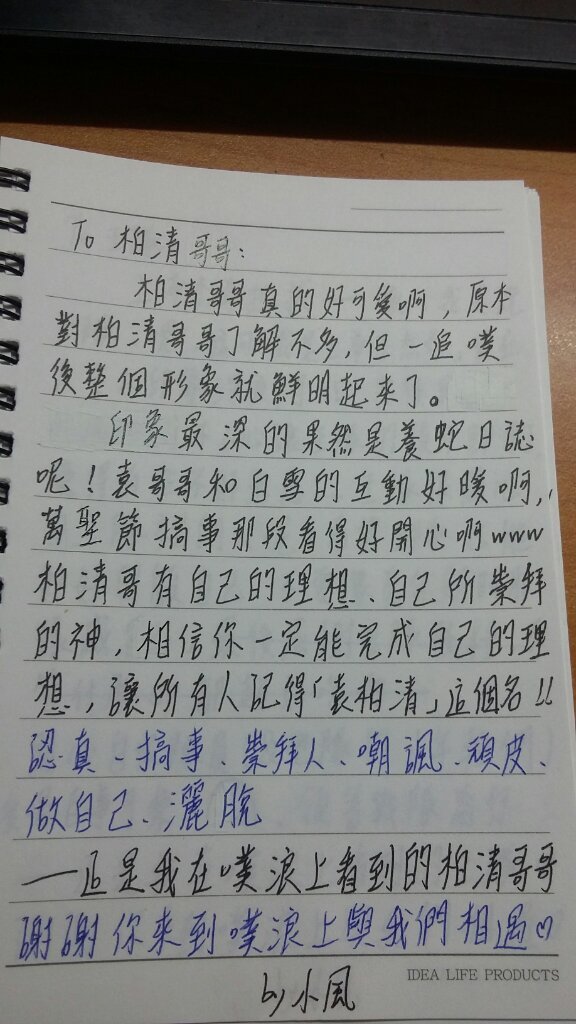 To 柏清哥哥：
柏清哥哥真的好可愛啊，原本
對柏清哥哥了解不多，但一追噗
後整個形象就鮮明起來了。
印象最深的果然是養蛇日誌
呢！袁哥哥和白雪的互動好暖啊，
萬聖節搞事那段看得好開心啊www
柏清哥有自己的理想、自己所崇拜
的神，相信你一定能完成自己的理
想，讓所有人記得「袁柏清」這個名!!
認真、搞事、崇拜人、嘲諷、頑皮、
做自己、灑脫
——這是我在噗浪上看到的柏清哥哥
謝謝你來到噗浪上與我們相遇♡
IDEA LIFE PRODUCTS
by 小風